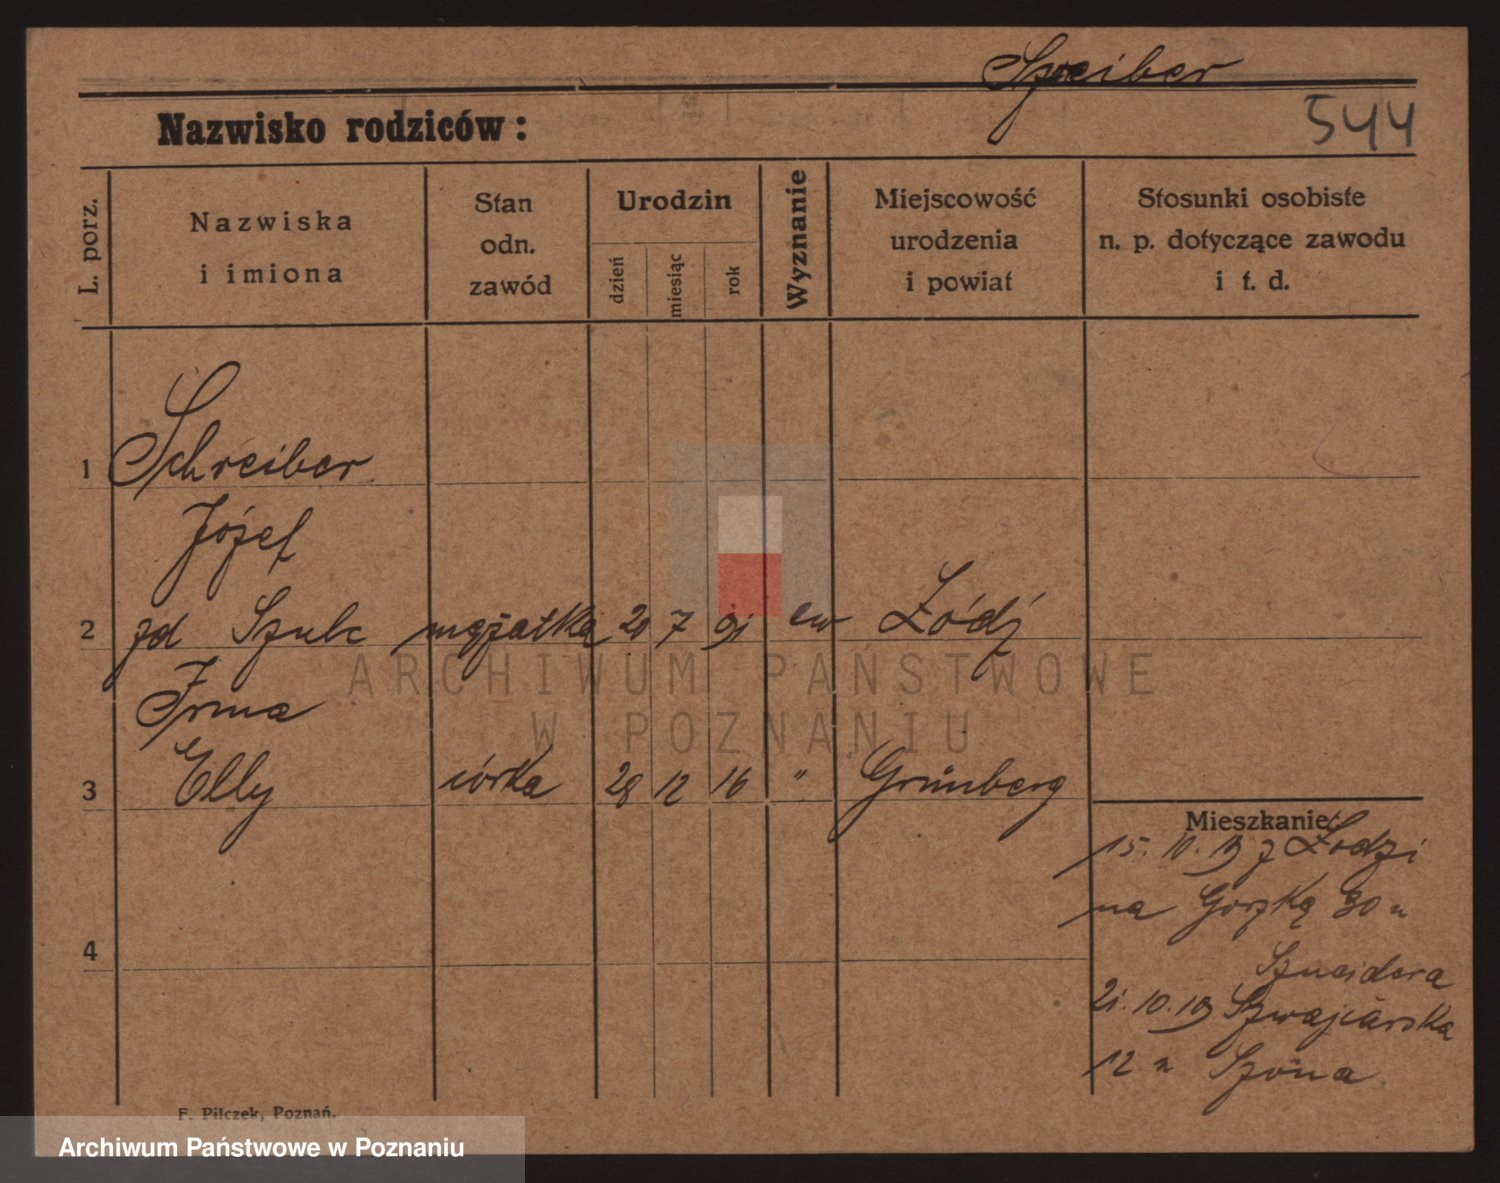 Szreiber
544
Nazwisko rodziców:
L. porz.
Nazwiska
i imiona
Stan
odn.
zawód
Urodzin
dzień
miesiąc
rok
Wyznanie
Miejscowość
urodzenia
i powiat
Stosunki osobiste
n. p. dotyczące zawodu
i t. d.
1 Schreiber
Józef
2 zd Szulc mężatka 21 7 91 ew Łódź
Irma
3 Elly córka 28 12 16 " Grünberg
Mieszkanie:
15. 10. 19 z Łodzi
na Górzką 30 u
Szneidera
21. 10. 19 Szwajcarska
12 u Szöna
4
F. Pilczek, Poznań.
ARCHIWUM PAŃSTWOWE
W POZNANIU
Archiwum Państwowe w Poznaniu